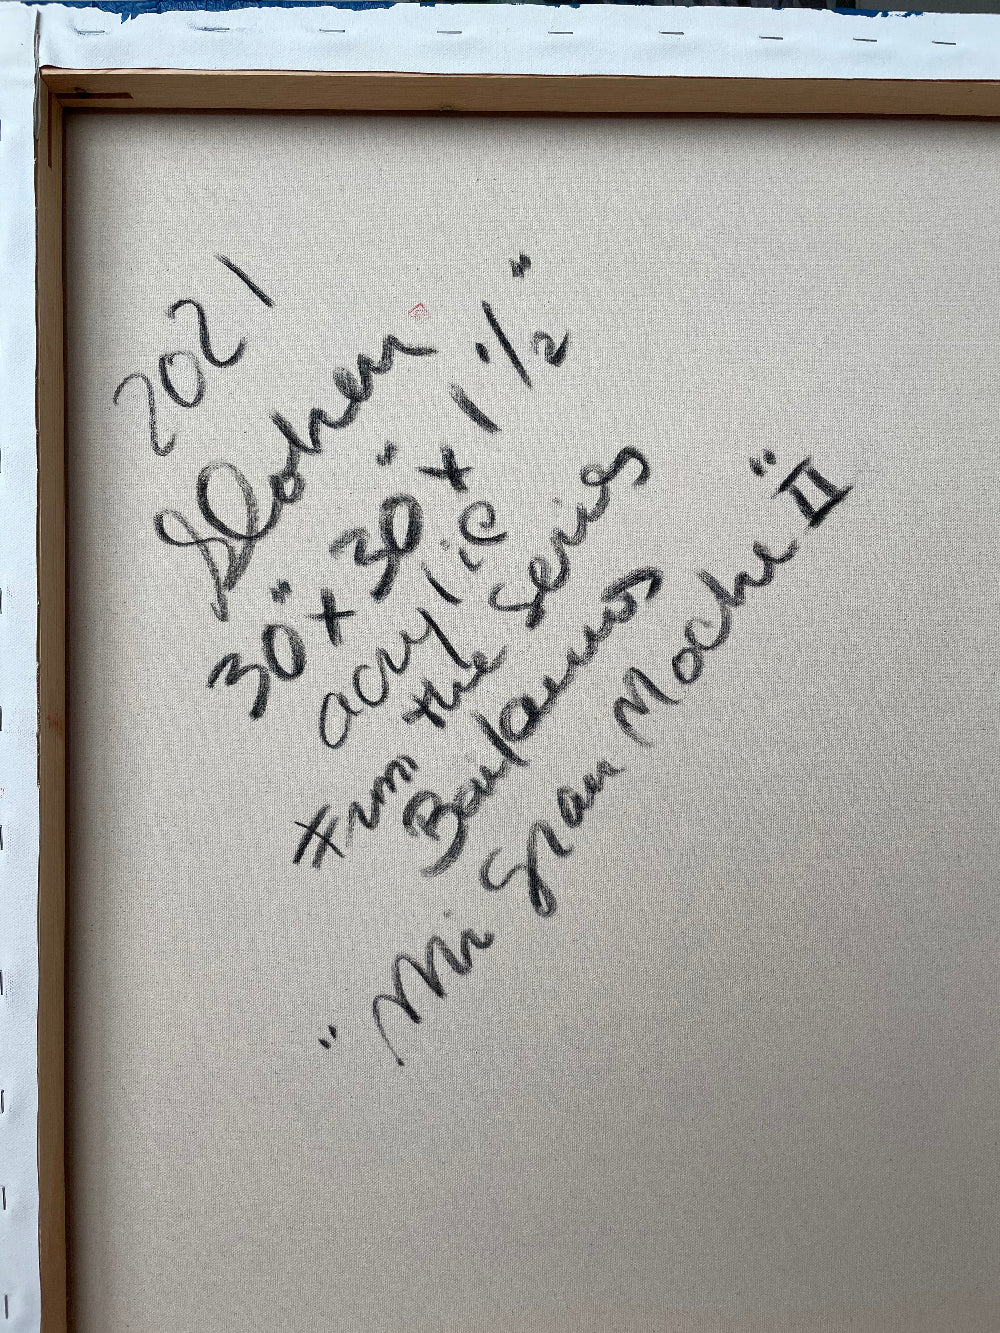 2021
30" x 30" x 1 1/2"
acrylic
from the series
Bailamos
"Mi gran Noche" II